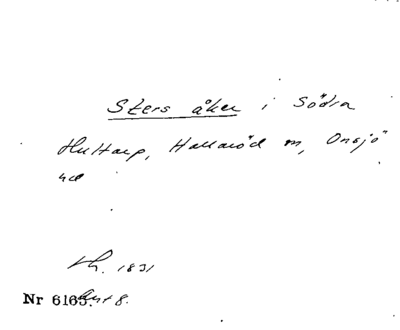 Sters åker i Södra
Hultarp, Hallaröd m, Onsjö
hd
kh. 1831
Nr 6165. 8.